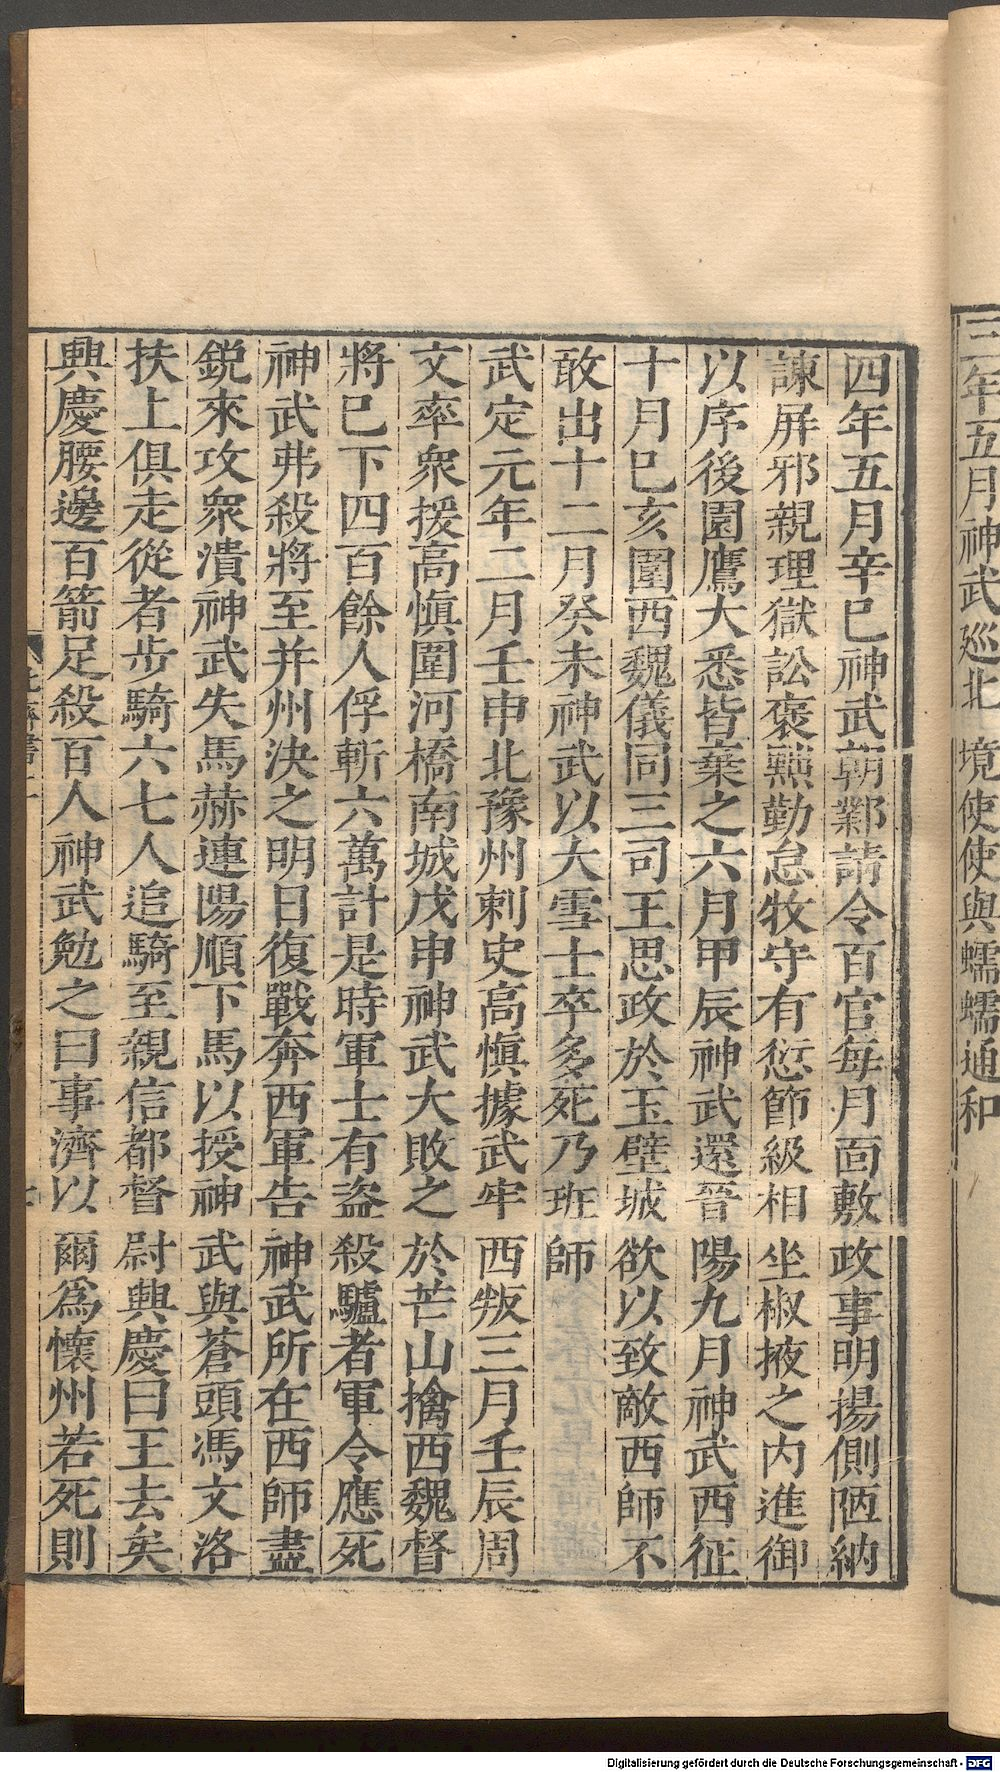 三年五月神武廵北境使使與蠕蠕通和
四年五月辛巳神武朝鄴請令百官每月面敷政事明揚側陋納
諫屏邪親理獄訟褒黜勤怠牧守有愆節級相坐椒掖之内進御
以序後園鷹犬悉皆棄之六月甲辰神武還晉陽九月神武西征
十月巳亥圍西魏儀同三司王思政於玉壁城欲以致敵西師不
敢出十二月癸未神武以大雪士卒多死乃班師
武定元年二月壬申北豫州刺史高愼據武牢西叛三月壬辰周
文率衆援高愼圍河橋南城戊申神武大敗之於芒山擒西魏督
將巳下四百餘人俘斬六萬計是時軍士有盜殺驢者軍令應死
神武弗殺將至并州決之明日復戰奔西軍告神武所在西師盡
銳來攻衆潰神武失馬赫連陽順下馬以授神武與蒼頭馮文洛
扶上俱走從者步騎六七人追騎至親信都督尉興慶曰王去矣
興慶腰邊百箭足殺百人神武勉之曰事濟以爾爲懷州若死則
Digitalisierung gefördert durch die Deutsche Forschungsgemeinschaft - DFG